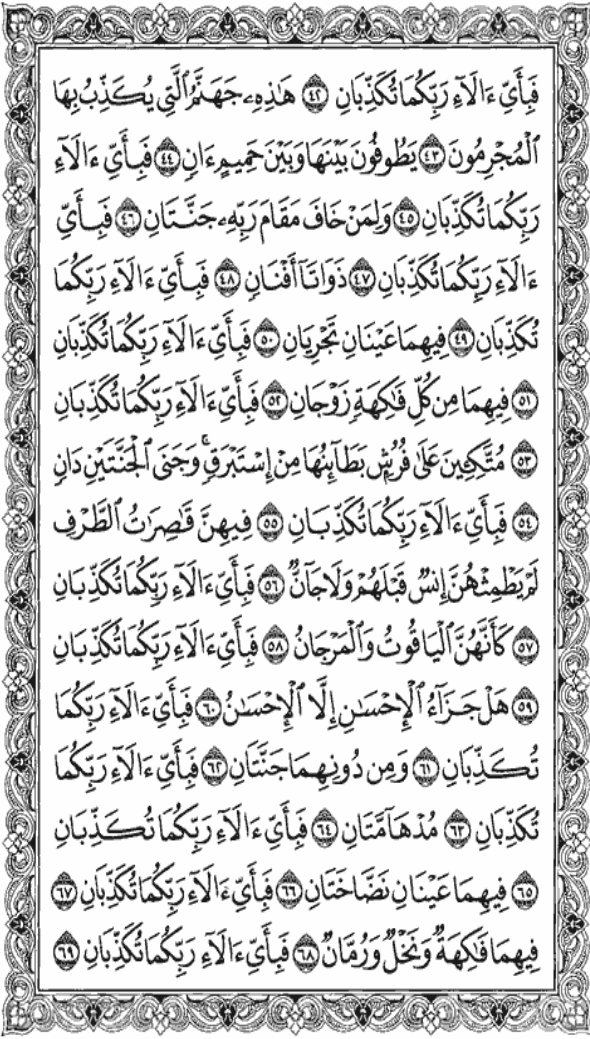 فَبِأَيِّ ءَالَآءِ رَبِّكُمَا تُكَذِّبَانِ ٤٢ هَٰذِهِۦ جَهَنَّمُ ٱلَّتِي يُكَذِّبُ بِهَا
ٱلْمُجْرِمُونَ ٤٣ يَطُوفُونَ بَيْنَهَا وَبَيْنَ حَمِيمٍ ءَانٖ ٤٤ فَبِأَيِّ ءَالَآءِ
رَبِّكُمَا تُكَذِّبَانِ ٤٥ وَلِمَنْ خَافَ مَقَامَ رَبِّهِۦ جَنَّتَانِ ٤٦ فَبِأَيِّ
ءَالَآءِ رَبِّكُمَا تُكَذِّبَانِ ٤٧ ذَوَاتَآ أَفْنَانٖ ٤٨ فَبِأَيِّ ءَالَآءِ رَبِّكُمَا
تُكَذِّبَانِ ٤٩ فِيهِمَا عَيْنَانِ تَجْرِيَانِ ٥٠ فَبِأَيِّ ءَالَآءِ رَبِّكُمَا تُكَذِّبَانِ
٥١ فِيهِمَا مِن كُلِّ فَٰكِهَةٖ زَوْجَانِ ٥٢ فَبِأَيِّ ءَالَآءِ رَبِّكُمَا تُكَذِّبَانِ
٥٣ مُتَّكِـِٔينَ عَلَىٰ فُرُشِۭ بَطَآئِنُهَا مِنْ إِسْتَبْرَقٖۚ وَجَنَى ٱلْجَنَّتَيْنِ دَانٖ
٥٤ فَبِأَيِّ ءَالَآءِ رَبِّكُمَا تُكَذِّبَانِ ٥٥ فِيهِنَّ قَٰصِرَٰتُ ٱلطَّرْفِ
لَمْ يَطْمِثْهُنَّ إِنسٞ قَبْلَهُمْ وَلَا جَآنّٞ ٥٦ فَبِأَيِّ ءَالَآءِ رَبِّكُمَا تُكَذِّبَانِ
٥٧ كَأَنَّهُنَّ ٱلْيَاقُوتُ وَٱلْمَرْجَانُ ٥٨ فَبِأَيِّ ءَالَآءِ رَبِّكُمَا تُكَذِّبَانِ
٥٩ هَلْ جَزَآءُ ٱلْإِحْسَٰنِ إِلَّا ٱلْإِحْسَٰنُ ٦٠ فَبِأَيِّ ءَالَآءِ رَبِّكُمَا
تُكَذِّبَانِ ٦١ وَمِن دُونِهِمَا جَنَّتَانِ ٦٢ فَبِأَيِّ ءَالَآءِ رَبِّكُمَا
تُكَذِّبَانِ ٦٣ مُدْهَآمَّتَانِ ٦٤ فَبِأَيِّ ءَالَآءِ رَبِّكُمَا تُكَذِّبَانِ
٦٥ فِيهِمَا عَيْنَانِ نَضَّاخَتَانِ ٦٦ فَبِأَيِّ ءَالَآءِ رَبِّكُمَا تُكَذِّبَانِ ٦٧
فِيهِمَا فَٰكِهَةٞ وَنَخْلٞ وَرُمَّانٞ ٦٨ فَبِأَيِّ ءَالَآءِ رَبِّكُمَا تُكَذِّبَانِ ٦٩